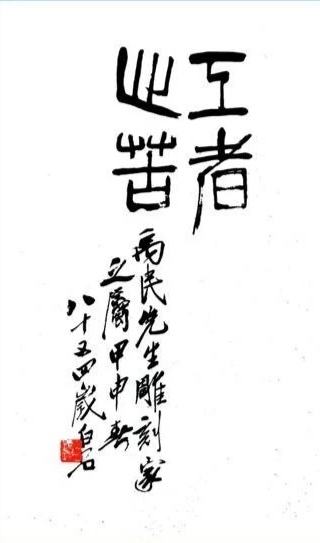 工者
之苦
禹民先生雕刻家
之屬甲申春
八十五四歲白石